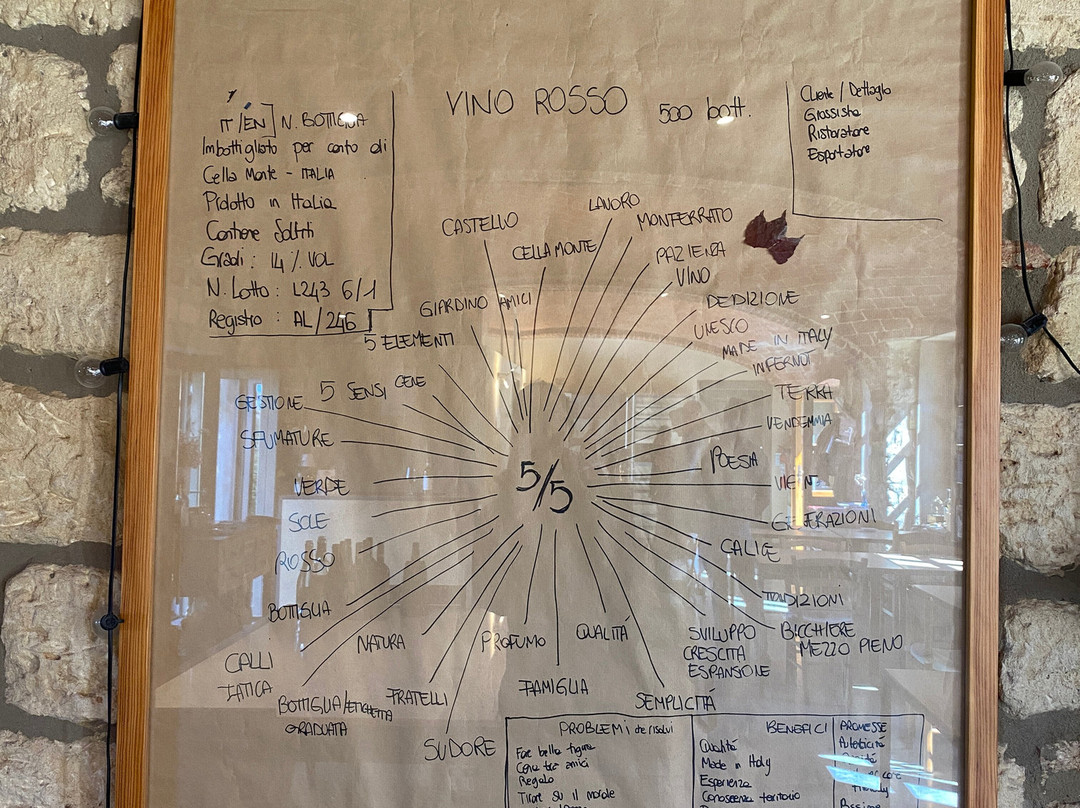 VINO ROSSO 500 bott.
IT/EN N. BOTTIGLIA
Imbottigliato per conto di
Cella Monte - ITALIA
Prodotto in Italia
Contiene Solfiti
Gradi: 14% VOL
N. Lotto: L243 6/1
Registro: AL/246
Cliente/Dettaglio
Grossista
Ristoratore
Esportatore
CASTELLO
LAVORO
MONFERRATO
CELLA MONTE
PAZIENZA
VINO
GIARDINO
AMICI
DEDIZIONE
UNESCO
5 ELEMENTI
MADE IN ITALY
INFERNOT
5 SENSI
CENE
TERRA
GESTIONE
VENDEMMIA
SFUMATURE
POESIA
5/5
VERDE
SOLE
GENERAZIONI
ROSSO
CALICE
BOTTIGLIA
TRADIZIONI
NATURA
PROFUMO
QUALITÁ
SVILUPPO
CRESCITA
ESPANSIONE
BICCHIERE
MEZZO PIENO
CALLI
FATICA
BOTTIGLIA/ETICHETTA
GRADUATA
FRATELLI
FAMIGLIA
SEMPLICITÁ
SUDORE
PROBLEMI che risolvi
Fare bella figura
Cena tra amici
Regalo
Tirare su il morale
BENEFICI
Qualitá
Made in Italy
Esperienza
Conoscenza territorio
PROMESSE
Autenticitá